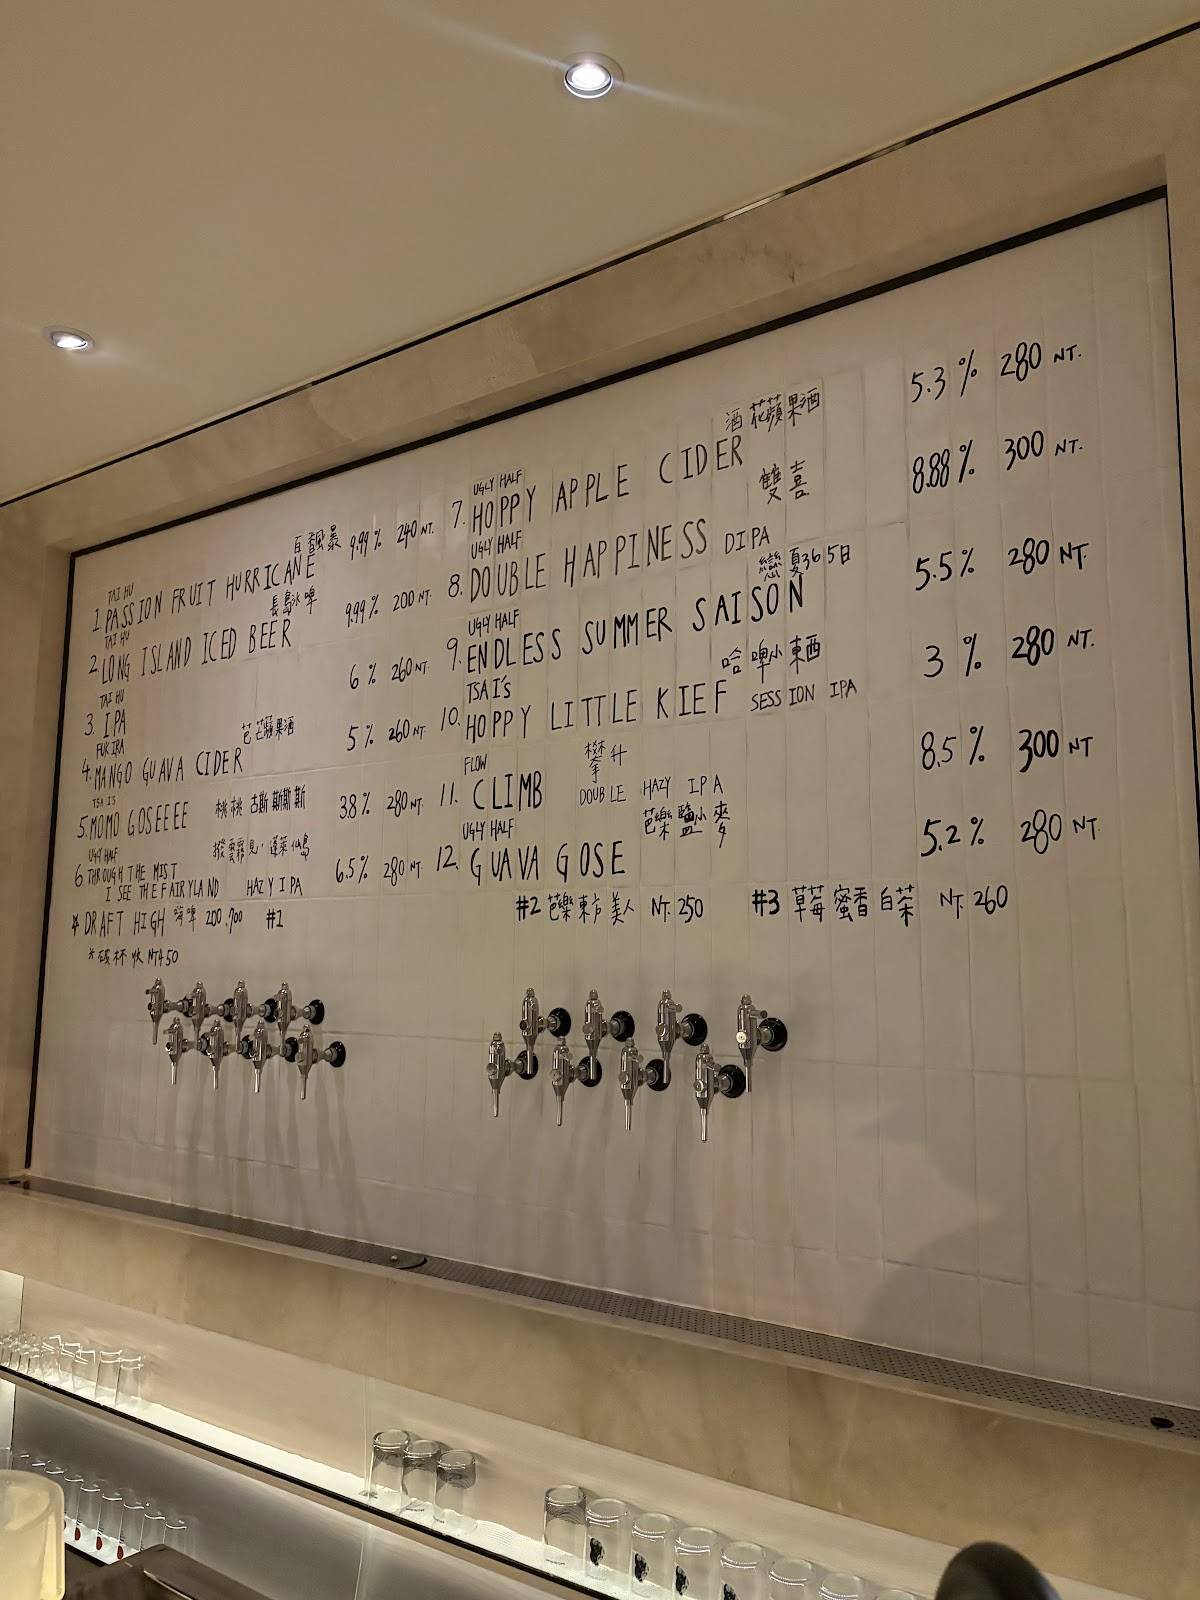 TAI HU
百香風暴 9.99% 240 NT.
1. PASSION FRUIT HURRICANE
TAI HU
長島冰啤 9.99% 200 NT.
2. LONG ISLAND ICED BEER
TAI HU
3. IPA 6% 260 NT.
FUKIRA
芭芒蘋果酒 5% 260 NT.
4. MANGO GUAVA CIDER
TSAI'S
5. MOMO GOSEEEE 桃桃古斯斯斯斯 3.8% 280 NT.
UGLY HALF
撥雲霧見,蓬萊仙島
6 THROUGH THE MIST
I SEE THE FAIRYLAND HAZY IPA 6.5% 280 NT.
* DRAFT HIGH 嗨啤 200.700 #1
* 破杯收 NT450
UGLY HALF
酒花蘋果酒 5.3% 280 NT.
7. HOPPY APPLE CIDER
UGLY HALF
雙喜 8.88% 300 NT.
8. DOUBLE HAPPINESS DIPA
UGLY HALF
戀夏365日 5.5% 280 NT.
9. ENDLESS SUMMER SAISON
TSAI'S
哈啤小東西 3% 280 NT.
10. HOPPY LITTLE KIEF SESSION IPA
FLOW
攀升 8.5% 300 NT
11. CLIMB DOUBLE HAZY IPA
UGLY HALF
芭樂鹽小麥 5.2% 280 NT.
12. GUAVA GOSE
#2 芭樂東方美人 NT. 250 #3 草莓蜜香白茶 NT. 260